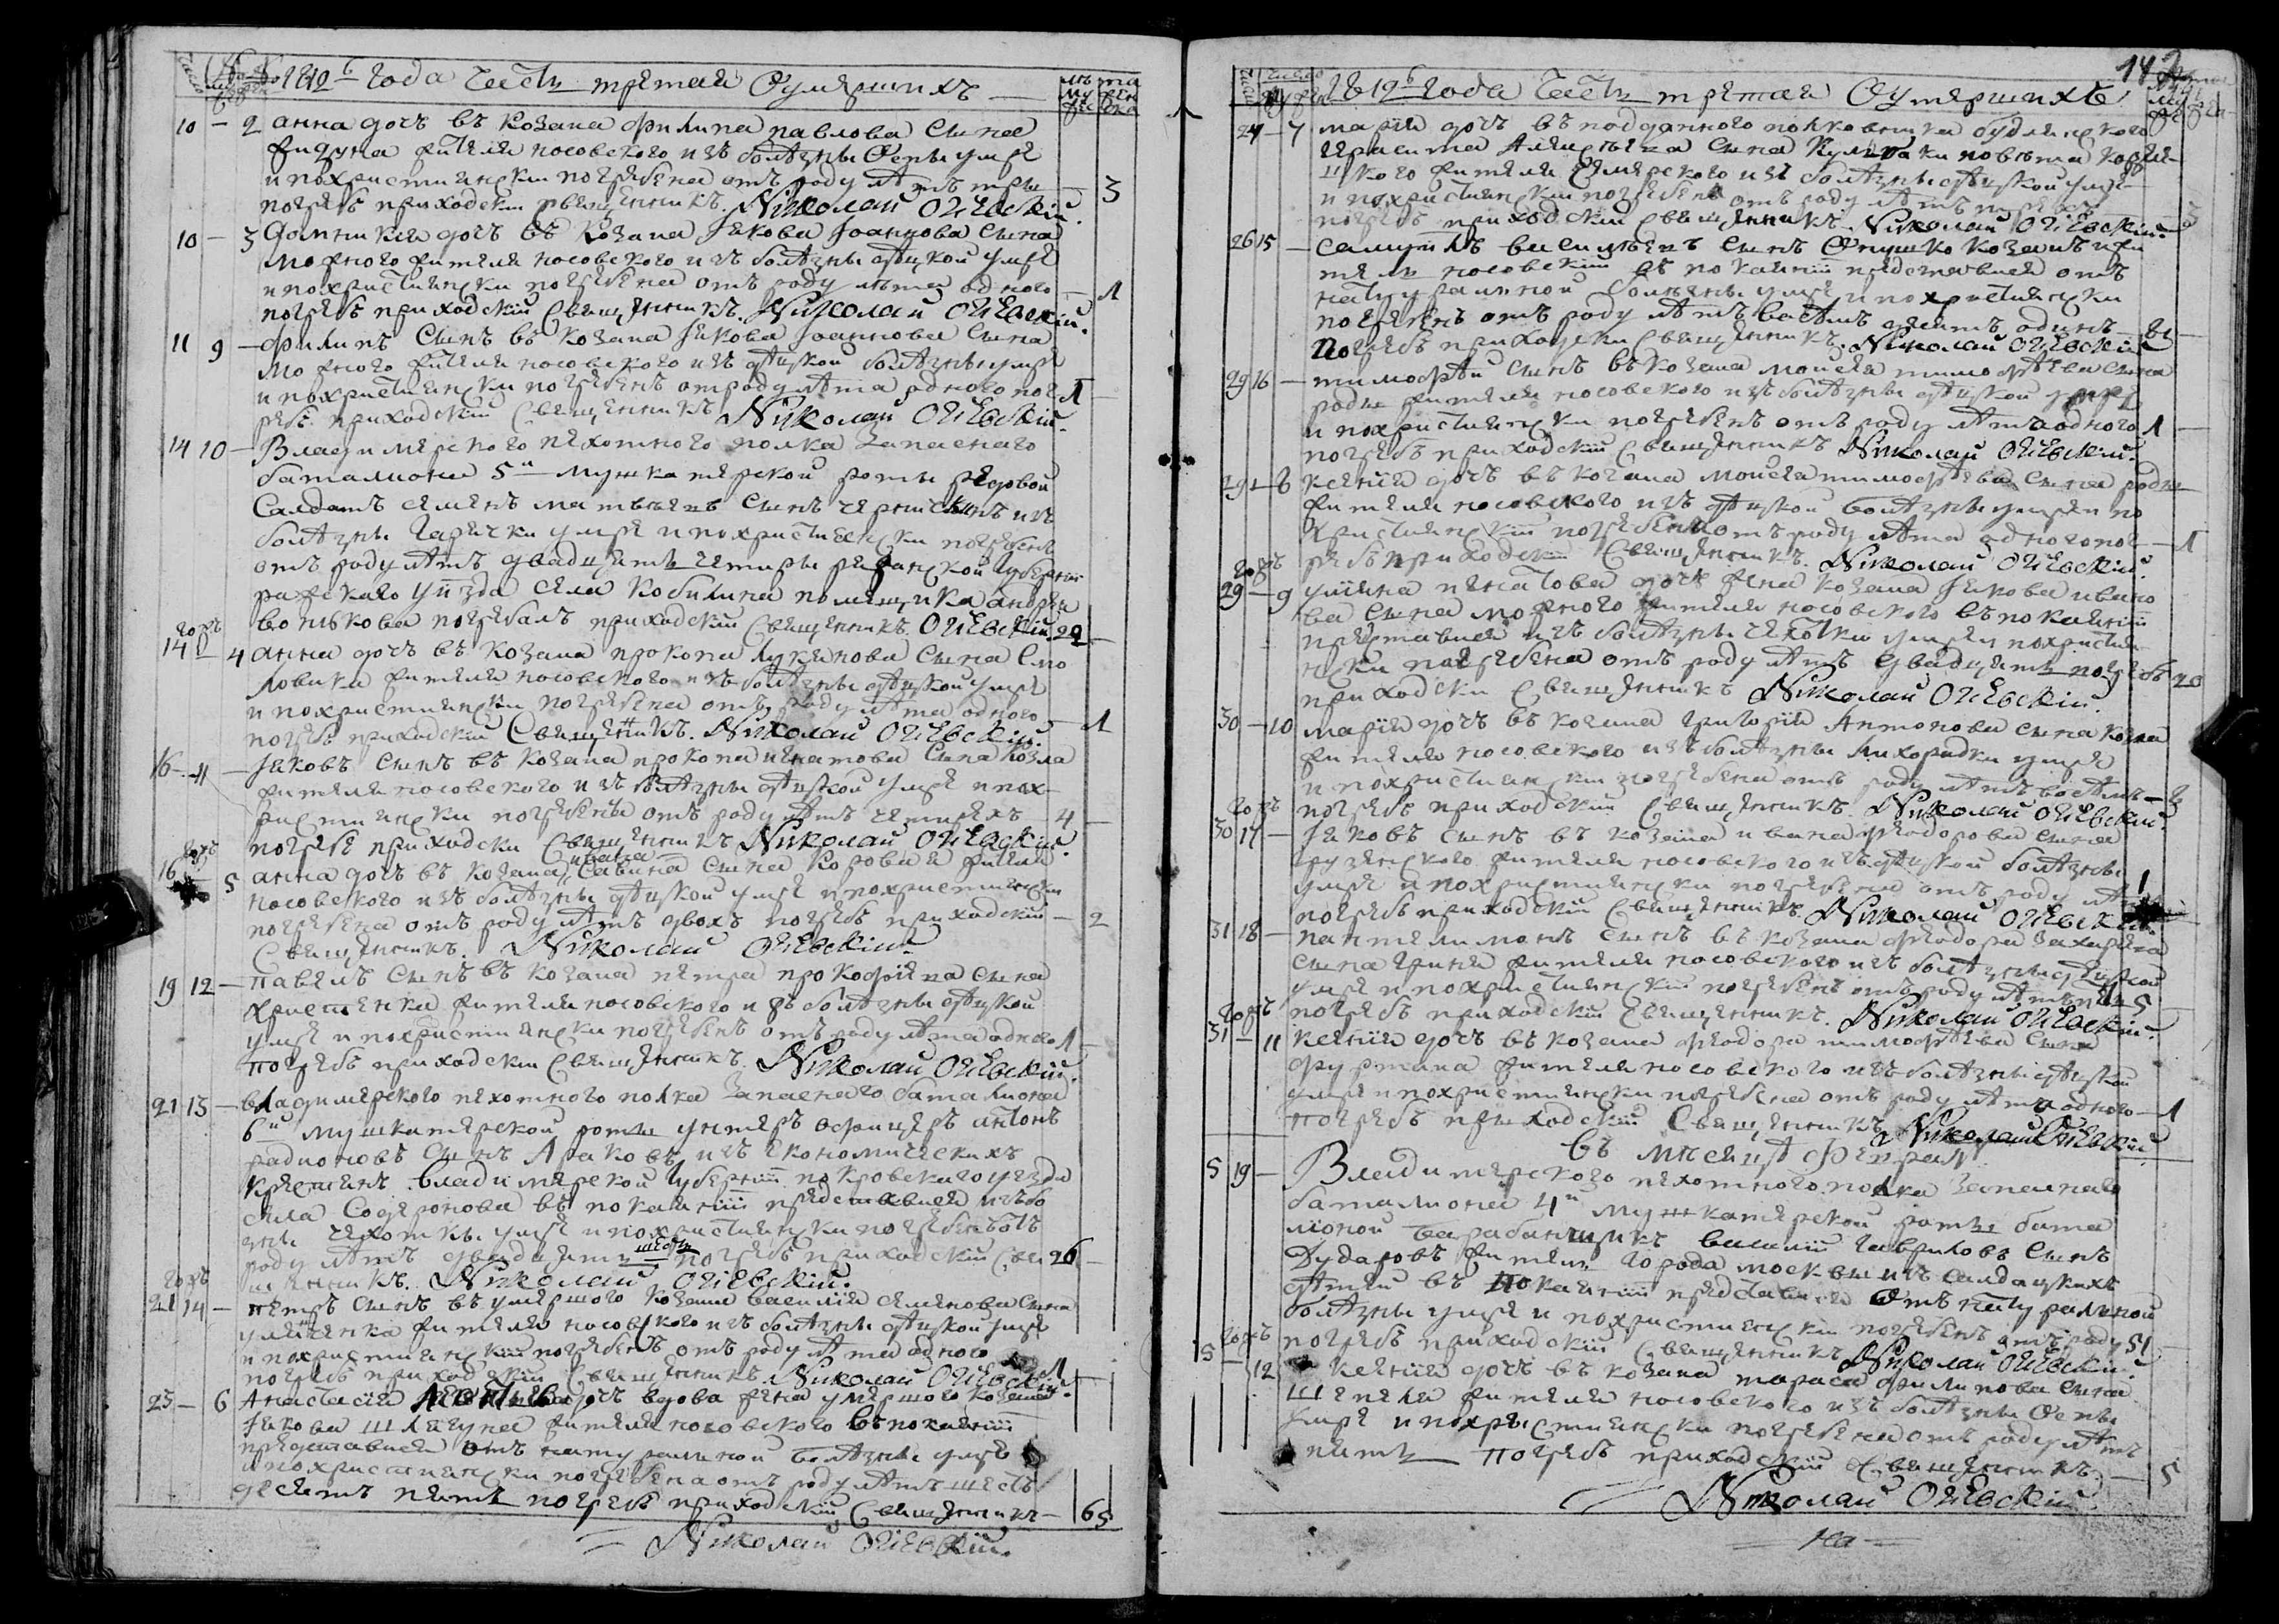 1819го года Часть третая Оумершихъ
10 — 2 анна дочь въ козака филипа павлова сына
жителя носовского изъ болѣзны оспы умре
и похристиянски погребена отъ роду лѣтъ три — 3
погребъ приходскии священникъ Николай Огіевскій.
10 — 3 Домникия дочь въ козака Якова Іоаннова сына
мо ного жителя носовского изъ болѣзны дѣцкой умре
и похристиянски погребена отъ роду лѣта одного — 1
погребъ приходскій священникъ Николай Огіевскій.
11 9 — филипъ сынъ въ козака Якова Іоаннова сына
мо ного жителя носовского изъ дѣцкой болѣзны умре
и похристиянски погребенъ отроду лѣта одного пог 1
ребъ приходскій священникъ Николай Огіевскій.
14 10 — Владимерского пехотного полка запасного
баталиона 5й мушкатерской роты редовой
салдатъ семенъ матвеевъ сынъ изъ
болѣзны гарячки умре и похристиянски погребенъ
отъ роду лѣтъ двадцять четыры резанской губерніи
ражскаго уизда села Кобилина помещика андрея
волькова погребалъ приходскій священникъ Огіевскій 24
тогожъ
14 — 4 анна дочь въ козака прокопа лукянова сына смо
ловика жителя носовского изъ болѣзны дѣцкой умре
и похристиянски погребена отъ роду лѣта одного — 1
погребъ приходскій священникъ Николай Огіевскій.
16 — 11 — Яковъ сынъ въ козака прокопа игнатова сына козла
жителя носовского изъ болѣзны дѣцкой умре и пох
ристиянски погребенъ отъ роду лѣтъ четырехъ — 4 —
погребъ приходски священникъ Николай Огіевскій.
тогожъ
16 5 анна дочь въ козака ивана савина сына коровая жителя
носовского изъ болѣзны дѣцкой умре и похристиянски
погребена отъ роду лѣтъ двохъ погребъ приходскій — 2
священникъ. Николай Огіевскій.
19 12 — павелъ сынъ въ козака петра прокофіева сына
христенка жителя носовского изъ болѣзны дѣцкой
умре и похристиянски погребенъ отъ роду лѣта одного 1 —
погребъ приходскій священникъ Николай Огіевскій.
21 13 — владимерского пехотного полка запасного баталиона
6й мушкатерской роты унтеръ офицеръ антонъ
радионовъ сынъ Араковъ изъ економическихъ
крестянъ владимерской губерніи покровского уезда
села въ покаяніи преставися изъ бо
зны чехотки умре и похристиянски погребенъ отъ
роду лѣтъ двадцять шесть погребъ приходскій свя 26 —
щенникъ. Николай Огіевскій.
тогожъ
21 14 — петръ сынъ въ умершого козака василия семенова сына
жителя носовского изъ болѣзны дѣцкой умре
и похристиянскій погребенъ отъ роду лѣта одного
погребъ приходскій священникъ Николай Огіевскій. 1
23 — 6 Анастасия дочь вдова жена умершого козака
Якова шлягуна жителя носовского въ покаяніи
преставися отъ натуралной болѣзны умре
и похристиянски погребена отъ роду лѣтъ шесть
десятъ пять погребъ приходскій священникъ — 65
Николай Огіевскій.
142
1819го года Часть третая Оумершихъ
24 — 7 марія дочь въ подданного полковника будлянского
герасима сына повета
кого жителя изъ болѣзны дѣцкой умре
и похристиянски погребена отъ роду лѣтъ трехъ
погребъ приходскій священникъ. Николай Огіевскій. — 3
26 15 — самуилъ василіевъ сынъ Опушко козакъ жи
тель носовскій въ покаяніи преставися отъ
натуралной болѣзны умре и похристиянски
погребенъ отъ роду лѣтъ васемъ десятъ одинъ — 81 —
погребъ приходски священникъ. Николай Огіевскій
29 16 — тимофѣй сынъ въ козака моисея тимофѣева сына
жителя носовского изъ болѣзны дѣцкой умре
и похристиянски погребенъ отъ роду лѣта одного 1 —
погребъ приходскій священникъ Николай Огіевскій.
29 — 8 ксенія дочь въ козака моисея тимофѣева сына
жителя носовского изъ дѣцкой болѣзны умре и по
християнскій погребена отъ роду лѣта одного пог — 1
ребъ приходскій священникъ. Николай Огіевскій.
тогожъ
29 — 9 уліяна игнатова дочь жена козака Якова ивано
ва сына мо ного жителя носовского въ покаяніи
преставися изъ болѣзны чехотки умре и похристия
нски погребена отъ роду лѣтъ двадцять погребъ 20
приходски священникъ Николай Огіевскій.
30 — 10 марія дочь въ козака григорія Антонова сына козла
жителя носовского изъ болѣзны лихорадки умре
и похристиянски погребена отъ роду лѣтъ восѣмъ — 8
погребъ приходскій священникъ. Николай Огіевскій.
тогожъ
30 17 — Яковъ сынъ въ козака ивана феодорова сына
грузенского жителя носовского изъ дѣцкой болѣзны
умре и похристиянски погребена отъ роду лѣта 1
погребъ приходскій священникъ. Николай Огіевскій.
31 18 — пантелимонъ сынъ въ козака феодора захарева
сына гриня жителя носовского изъ болѣзны дѣцкой
умре и похристиянскій погребенъ отъ роду лѣтъ пять 5
погребъ приходскій священникъ. Николай Огіевскій.
тогожъ
31 — 11 ксенія дочь въ козака феодора тимофѣева сына
жителя носовского изъ болѣзны дѣцкой
умре и похристиянски погребена отъ роду лѣта одного — 1
погребъ приходскій священникъ Николай Огіевскій
въ месяцѣ февралѣ
5 19 — Владимерского пехотного полка запасного
баталиона 4й мушкатерской роты бата
ліоной барабанщикъ василій гавриловъ сынъ
Дударовъ житель города москвы изъ салдацкихъ
дѣтей въ покаяніи преставися отъ натуралной
болѣзны умре и похристиянскій погребенъ отъ роду 51
погребъ приходскій священникъ Николай Огіевскій.
тогожъ
5 — 12 ксенія дочь въ козака тараса филипова сына
шепеля жителя носовского изъ болѣзны оспы
умре и похристиянски погребена отъ роду лѣтъ
пять погребъ приходскій священникъ — 5
Николай Огіевскій.